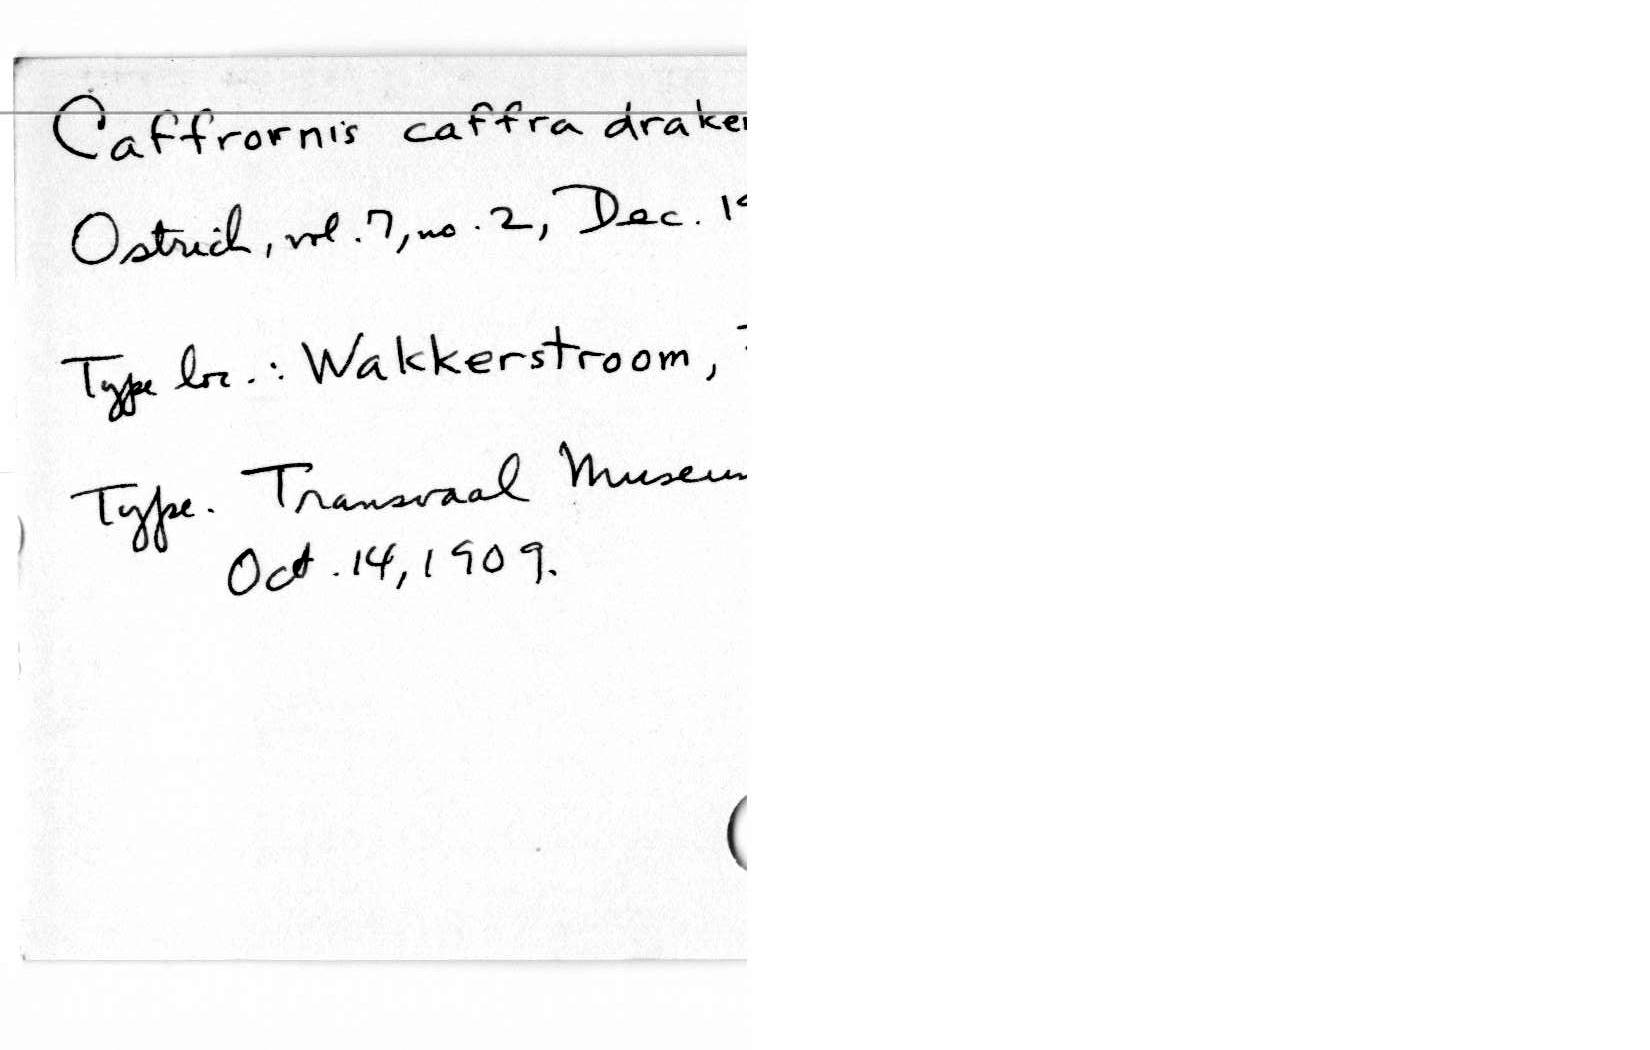 Caffrornis caffra
Ostrich, vol. 7, no. 2, Dec.
Type loc.: Wakkerstroom,
Type. Transvaal Museum
Oct. 14, 1909.